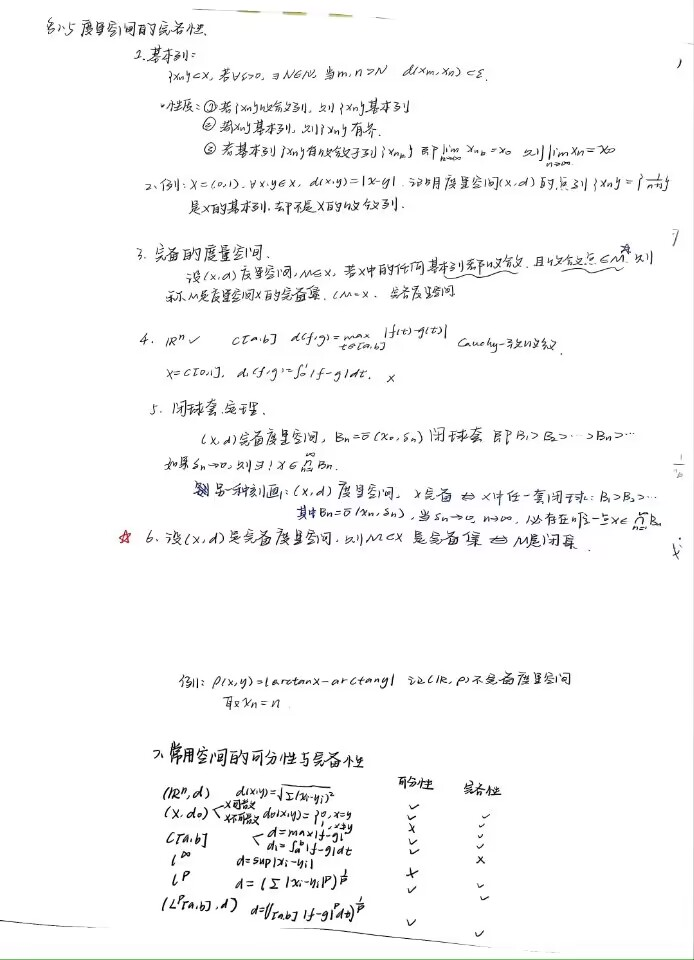 §1.5 度量空间的完备性.
1. 基本列:
{xn}⊂X, 若∀ε>0, ∃N∈N, 当m,n>N d(xm,xn)<ε.
•性质: ①若{xn}收敛列, 则{xn}基本列
②若{xn}基本列, 则{xn}有界.
③若基本列{xn}有收敛子列{xnk} 即lim xnk=x0 则lim xn=x0
k→∞ n→∞
2. 例: X=(0,1). ∀x,y∈X, d(x,y)=|x-y|. 证明度量空间(X,d)的点列{xn}={1/(n+1)}
是X的基本列, 却不是X的收敛列.
3. 完备的度量空间.
设(X,d)度量空间, M⊂X, 若X中的任何基本列都收敛. 且收敛点∈M, 则
称M是度量空间X的完备集. (M=X. 完备度量空间
4. ℝⁿ✓ C[a,b] d(f,g)=max |f(t)-g(t)| Cauchy一致收敛.
t∈[a,b]
X=C[0,1], d₁(f,g)=∫₀¹|f-g|dt. ×
5. 闭球套定理.
(X,d)完备度量空间, Bn=Ō(xn,δn)闭球套 即B1⊃B2⊃…⊃Bn⊃…
如果δn→0, 则∃!x∈∩Bn.
另一种刻画: (X,d)度量空间. X完备⇔X中任一套闭球: B1⊃B2⊃…
其中Bn=Ō(xn,δn), 当δn→0, n→∞, 必存在唯一点x∈∩Bn
☆ 6. 设(X,d)是完备度量空间. 则M⊂X是完备集⇔M是闭集.
例1: ρ(x,y)=|arctanx-arctany| 证(ℝ,ρ)不完备度量空间
取xn=n.
7. 常用空间的可分性与完备性
可分性 完备性
(ℝⁿ,d) d(x,y)=√Σ|xi-yi|² ✓ ✓
(X,d0) X可数 ✓ ✓
X不可数 d0(x,y)={0,x=y 1,x≠y × ✓
C[a,b] d=max|f-g| ✓ ✓
d₁=∫ₐᵇ|f-g|dt ✓ ×
l^∞ d=sup|xi-yi| × ✓
l^p d=(Σ|xi-yi|^p)^{1/p} ✓ ✓
(L^p[a,b],d) d=(∫[a,b]|f-g|^p dt)^{1/p} ✓ ✓